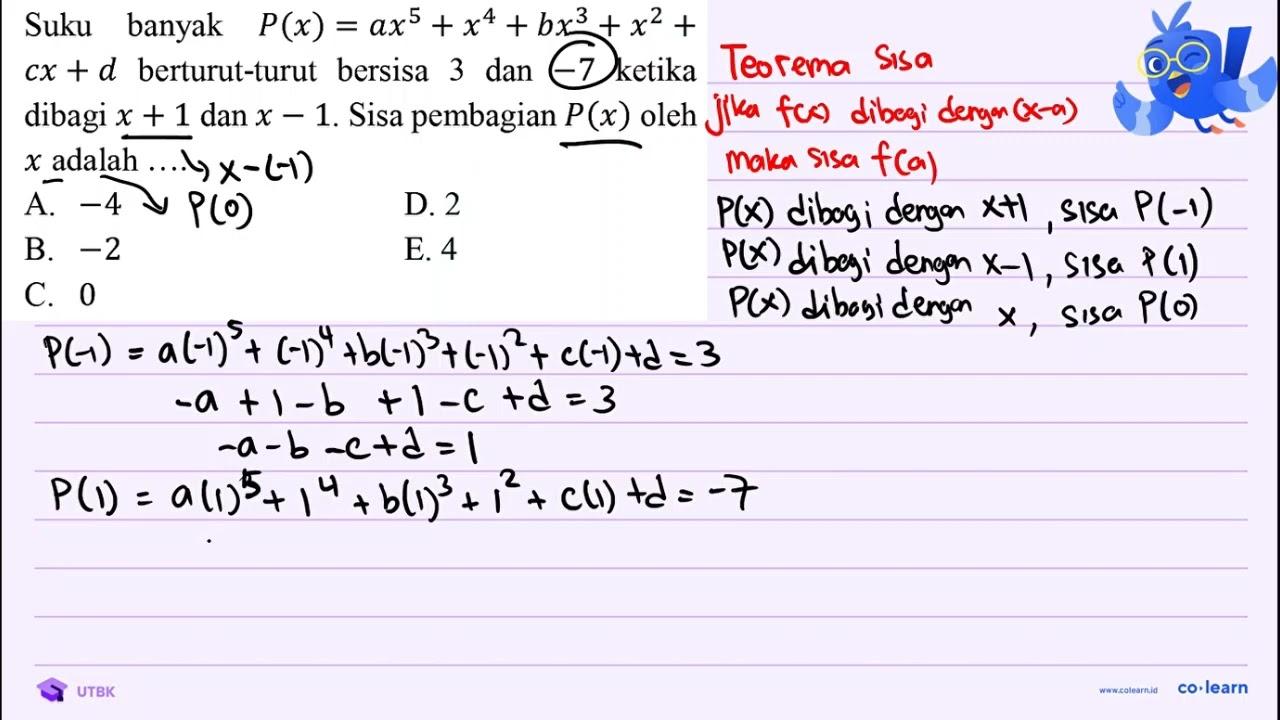 Suku banyak P(x) = ax⁵ + x⁴ + bx³ + x² +
cx + d berturut-turut bersisa 3 dan −7 ketika
dibagi x + 1 dan x − 1. Sisa pembagian P(x) oleh
x adalah ....
x-(-1)
A. −4
P(0)
D. 2
B. −2
E. 4
C. 0
Teorema Sisa
jika f(x) dibagi dengan (x-a)
maka sisa f(a)
P(x) dibagi dengan x+1, sisa P(-1)
P(x) dibagi dengan x-1, sisa P(1)
P(x) dibagi dengan x, sisa P(0)
P(-1) = a(-1)⁵ + (-1)⁴ + b(-1)³ + (-1)² + c(-1) + d = 3
-a + 1 - b + 1 - c + d = 3
-a - b - c + d = 1
P(1) = a(1)⁵ + 1⁴ + b(1)³ + 1² + c(1) + d = -7
UTBK
www.colearn.id
co·learn